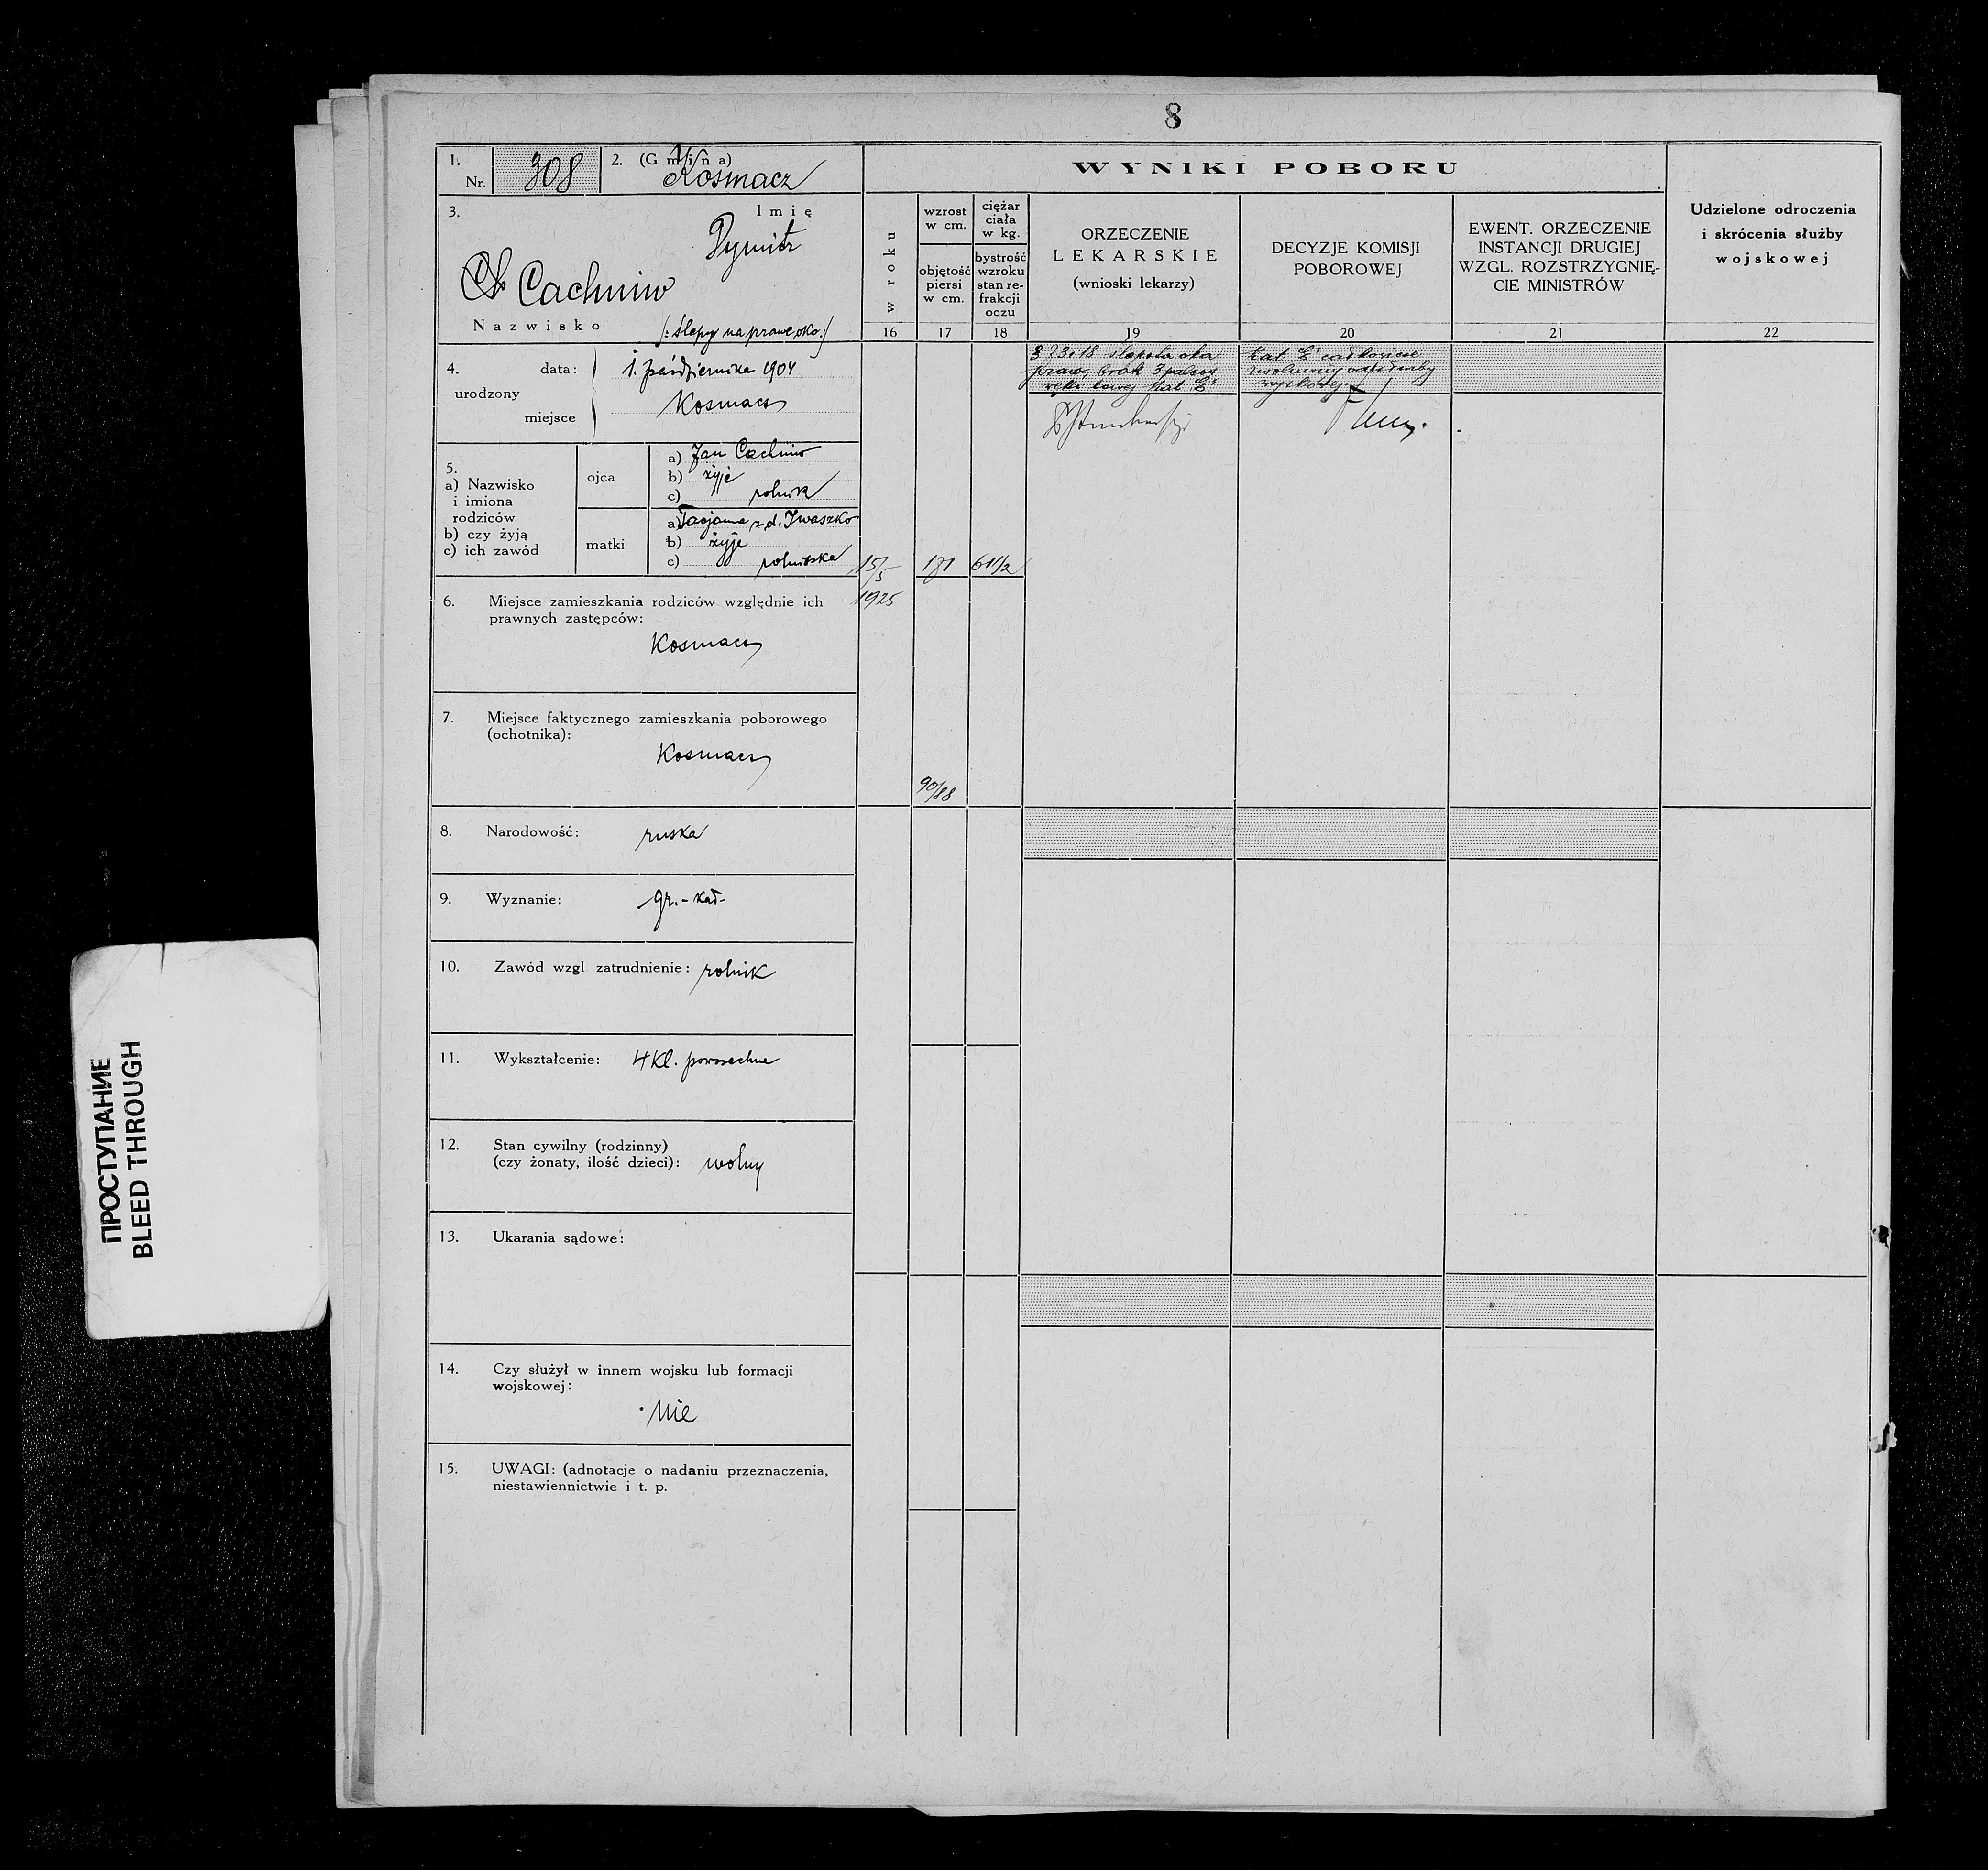 8
1.
Nr. 308
2. (Gmina)
Kosmacz
3.
Imię
Dymitr
Cachniw
Nazwisko
(: ślepy na prawe oko :)
4.
urodzony
data:
1. października 1904
miejsce
Kosmacz
5.
a) Nazwisko
i imiona
rodziców
b) czy żyją
c) ich zawód
ojca
a) Jan Cachniw
b) żyje
c) rolnik
matki
a) Tacjanna z d. Iwaszko
b) żyje
c) rolniczka
6. Miejsce zamieszkania rodziców względnie ich
prawnych zastępców:
Kosmacz
7. Miejsce faktycznego zamieszkania poborowego
(ochotnika):
Kosmacz
8. Narodowość: ruska
9. Wyznanie: gr.-kat-
10. Zawód wzgl zatrudnienie: rolnik
11. Wykształcenie: 4 Kl. powszechne
12. Stan cywilny (rodzinny)
(czy żonaty, ilość dzieci): wolny
13. Ukarania sądowe:
14. Czy służył w innem wojsku lub formacji
wojskowej:
Nie
15. UWAGI: (adnotacje o nadaniu przeznaczenia,
niestawiennictwie i t. p.
WYNIKI POBORU
w roku
16
15/5
1925
wzrost
w cm.
objętość
piersi
w cm.
17
171
90/88
ciężar
ciała
w kg.
bystrość
wzroku
stan re-
frakcji
oczu
18
61 1/2
ORZECZENIE
LEKARSKIE
(wnioski lekarzy)
19
ślepota oka
praw. brak 3 palcy
ręki lewej Kat "E"
DECYZJE KOMISJI
POBOROWEJ
20
Kat "E" całkowicie
EWENT. ORZECZENIE
INSTANCJI DRUGIEJ
WZGL. ROZSTRZYGNIĘ-
CIE MINISTRÓW
21
Udzielone odroczenia
i skrócenia służby
wojskowej
22
ПРОСТУПАНИЕ
BLEED THROUGH